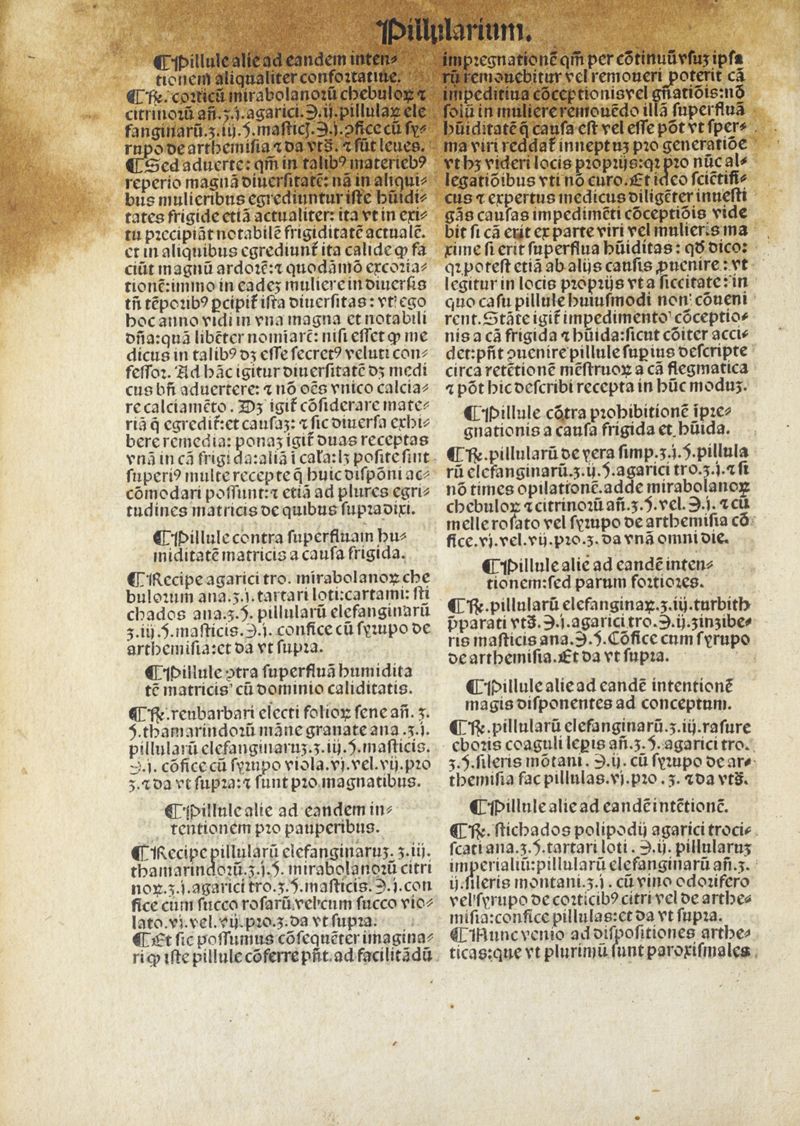 Pillularium.
¶Pillule alie ad eandem inten⸗
tionem aliqualiter confortatiue.
¶℞. corticū mirabolanorū chebuloꝝ ⁊
citrinorū añ.ʒ.j.agarici.℈.ij.pillulaꝝ ele
fanginarū.ʒ.iij.ƽ.masticꝭ.℈.j.ꝯfice cū sy⸗
rupo de arthemisia ⁊ da vts̄. ⁊ sūt leues.
¶Sed aduerte: qm̄ in talibꝰ materiebꝰ
reperio magnā diuersitatē: nā in aliqui⸗
bus mulieribus egrediuntur iste hūidi⸗
tates frigide etiā actualiter: ita vt in exi⸗
tu precipiāt notabilē frigiditatē actualē.
et in aliquibus egrediunt̄ ita calide ꝙ fa
ciūt magnū ardorē: ⁊ quodāmō excoria⸗
tionē:immo in eadeʒ muliere in diuersis
tñ tēporibꝰ ꝑcipit̄ ista diuersitas: vt ego
hoc anno vidi in vna magna et notabili
dn̄a:quā libēter nomiarē: nisi esset ꝙ me
dicus in talibꝰ dʒ esse secretꝰ veluti con⸗
fessor. Ad hāc igitur diuersitatē dʒ medi
cus bn̄ aduertere: ⁊ nō oēs vnico calcia⸗
re calciamēto. Dʒ igit̄ cōsiderare mate⸗
riā q̄ egredit̄: et causaʒ: ⁊ sic diuersa exhi⸗
bere remedia: ponaʒ igit̄ duas receptas
vnā in cā frigida:aliā ī cal̄a:lʒ posite sint
superiꝰ multe recepte q̄ huic dispōni ac⸗
cōmodari possunt: ⁊ etiā ad plures egri⸗
tudines matricis de quibus supra dixi.
¶Pillule contra superfluam hu⸗
miditatē matricis a causa frigida.
¶Recipe agarici tro. mirabolanoꝝ che
bulorum ana.ʒ.j.tartari loti:cartami: sti
chados ana.ʒ.ƽ. pillularū elefanginarū
ʒ.iij.ƽ.masticis.℈.j. confice cū syrupo de
arthemisia:et da vt supra.
¶Pillule ꝯtra superfluā humidita
tē matricis cū dominio caliditatis.
¶℞.reubarbari electi folioꝝ sene añ. ʒ.
ƽ.thamarindorū māne granate ana .ʒ.j.
pillularū elefanginaruʒ.ʒ.iij.ƽ.masticis.
℈.j. cōfice cū syrupo viola.vj.vel.vij.pro
ʒ.⁊ da vt supra: ⁊ sunt pro magnatibus.
¶Pillule alie ad eandem in⸗
tentionem pro pauperibus.
¶Recipe pillularū elefanginaruʒ. ʒ.iij.
thamarindorū.ʒ.j.ƽ. mirabolanorū citri
noꝝ.ʒ.j.agarici tro.ʒ.ƽ.masticis.℈.j.con
fice cum succo rosarū.vel cum succo vio⸗
lato.vj.vel.vij.pro.ʒ.da vt supra.
¶Et sic possumus cōsequēter imagina⸗
ri ꝙ iste pillule cōferre pn̄t.ad facilitādū
impregnationē qm̄ per cōtinuū vsuʒ ipsa
rū remouebitur vel remoueri poterit cā
impeditiua cōceptionis vel gn̄atiōis:nō
solū in muliere remouēdo illā superfluā
hūiditatē q̄ causa est vel esse pōt vt sper⸗
ma viri reddat̄ inneptuʒ pro generatiōe
vt hʒ videri locis proprijs:qꝛ pro nūc al⸗
legatiōibus vti nō curo. Et ideo sciētifi⸗
cus ⁊ expertus medicus diligēter inuesti
gās causas impedimēti cōceptiōis vide
bit si cā erit ex parte viri vel mulieris ma
xime si erit superflua hūiditas: qd̄ dico:
qꝛ potest etiā ab alijs causis ꝓuenire : vt
legitur in locis proprijs vt a siccitate: in
quo casu pillule huiusmodi non cōueni
rent. Stāte igit̄ impedimento cōceptio⸗
nis a cā frigida ⁊ hūida:sicut cōiter acci⸗
det:pn̄t ꝯuenire pillule supius descripte
circa retētionē mēstruoꝝ a cā flegmatica
⁊ pōt hic describi recepta in hūc moduʒ.
¶Pillule cōtra prohibitionē īpre⸗
gnationis a causa frigida et hūida.
¶℞.pillularū de yera simp.ʒ.j.ƽ.pillula
rū elefanginarū.ʒ.ij.ƽ.agarici tro.ʒ.j.⁊ si
nō times opilationē.adde mirabolanoꝝ
chebuloꝝ ⁊ citrinorū añ.ʒ.ƽ.vel.℈.j. ⁊ cū
melle rosato vel syrupo de arthemisia cō
fice.vj.vel.vij.pro.ʒ.da vnā omni die.
¶Pillule alie ad eandem inten⸗
tionem:sed parum fortiores.
¶℞.pillularū elefanginaꝝ.ʒ.iij.turbith
p̄parati vts̄.℈.j.agarici tro.℈.ij.ʒinʒibe⸗
ris masticis ana.℈.ƽ.Cōfice cum syrupo
de arthemisia.Et da vt supra.
¶Pillule alie ad eandē intentionē
magis disponentes ad conceptum.
¶℞.pillularū elefanginarū.ʒ.iij.rasure
eboris coaguli lepis añ.ʒ.ƽ. agarici tro.
ʒ.ƽ.sileris mōtani. ℈.ij. cū syrupo de ar⸗
themisia fac pillulas.vj.pro .ʒ. ⁊ da vts̄.
¶Pillule alie ad eandē intētionē.
¶℞. stichados polipodij agarici troci⸗
scati ana.ʒ.ƽ.tartari loti. ℈.ij. pillularuʒ
imperialiū:pillularū elefanginarū añ.ʒ.
ij.sileris montani.ʒ.j. cū vino odorifero
vel syrupo de corticibꝰ citri vel de arthe⸗
misia:confice pillulas:et da vt supra.
¶Nunc venio ad dispositiones arthe⸗
ticas:que vt plurimū sunt paroxismales